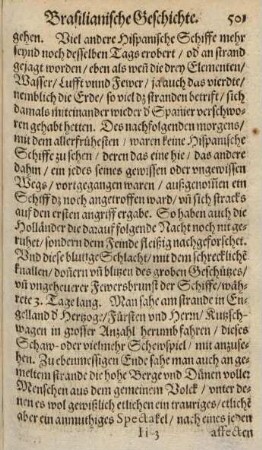 Brasilianische Geschichte. 501
gehen. Viel andere Hispanische Schiffe mehr
seynd noch desselben Tags erobert / od an strand
gejagt worden / eben als weñ die drey Elementen /
Wasser / Lufft vnnd Fewer / ja auch das vierdte /
nemblich die Erde / so viel dz stranden betrifft / sich
damals miteinander wieder d' Spanier verschwo-
ren gehabt hetten. Des nachfolgenden morgens /
mit dem allerfrühesten / waren keine Hispanische
Schiffe zu sehen / deren das eine hie / das andere
dahin / ein jedes seines gewissen oder vngewissen
Wegs / vortgegangen waren / außgenom̃en ein
Schiff dz noch angetroffen ward / vñ sich stracks
auf den ersten angriff ergabe. So haben auch die
Holländer die darauf folgende Nacht noch nit ge-
ruhet / sondern dem Feinde fleißig nachgeforschet.
Vnd diese blutige Schlacht / mit dem schrecklichē
knallen / doñern vñ blitzen des groben Geschützes /
vñ vngeheuerer Fewersbrunst der Schiffe / wäh-
rete 3. Tage lang. Man sahe am strande in En-
gelland d' Hertzoge / Fürsten vnd Hern / Kutzsch-
wagen in grosser Anzahl herumb fahren / dieses
Schaw- oder vielmehr Schewspiel / mit anzuse-
hen. Zu ebenmessigen Ende sahe man auch an ge-
meltem strande die hohe Berge vnd Dünen voller
Menschen aus dem gemeinem Volck / vnter de-
nen es wol gewißlich etlichen ein trauriges / etlichē
aber ein anmuthiges Spectakel / nach eines jeden
Ii-3 affecten